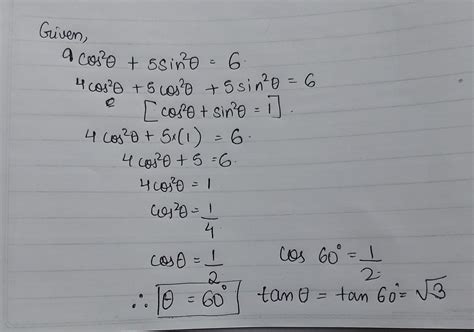 Given,
9 cos²θ + 5sin²θ = 6.
4 cos²θ + 5 cos²θ + 5 sin²θ = 6
[cos²θ + sin²θ = 1].
4 cos²θ + 5×(1) = 6.
4 cos²θ + 5 = 6.
4cos²θ = 1
cos²θ = 1/4
cosθ = 1/2 cos 60° = 1/2.
∴ θ = 60° tanθ = tan 60° = √3